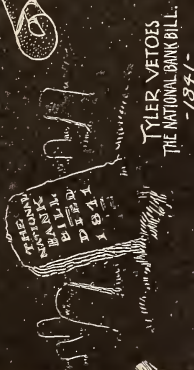 THE
NATIONAL
BANK
BILL
DIED
1841
TYLER VETOES
THE NATIONAL BANK BILL.
-1841-